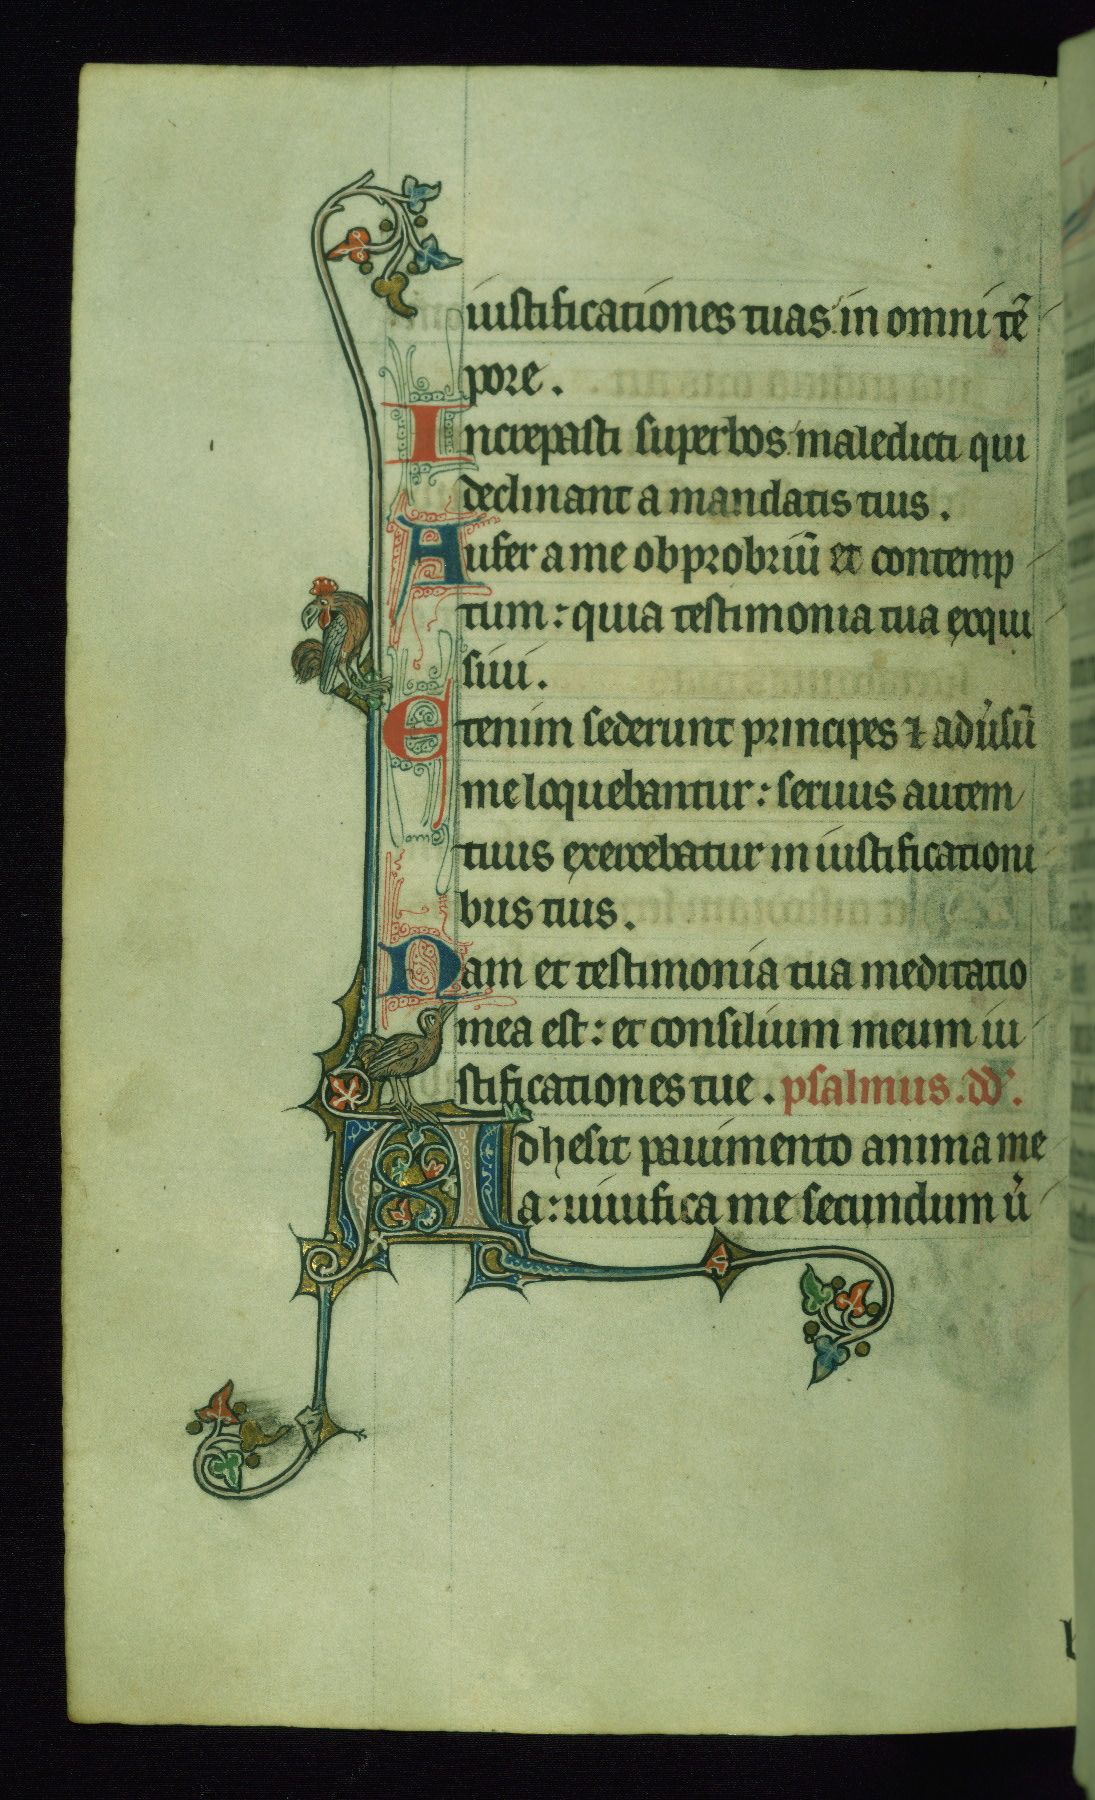 iustificationes tuas in omni tē
pore.
Increpasti superbos maledicti qui
declinant a mandatis tuis.
Aufer a me obprobriū et contemp
tum: quia testimonia tua exqui
siui.
Etenim sederunt principes ⁊ adu̓sū
me loquebantur: seruus autem
tuus exercebatur in iustificationi
bus tuis.
Nam et testimonia tua meditatio
mea est: et consilium meum iu
stificationes tue. psalmus. dd̓.
Adhesit pauimento anima me
a: uiuifica me secundum u̓